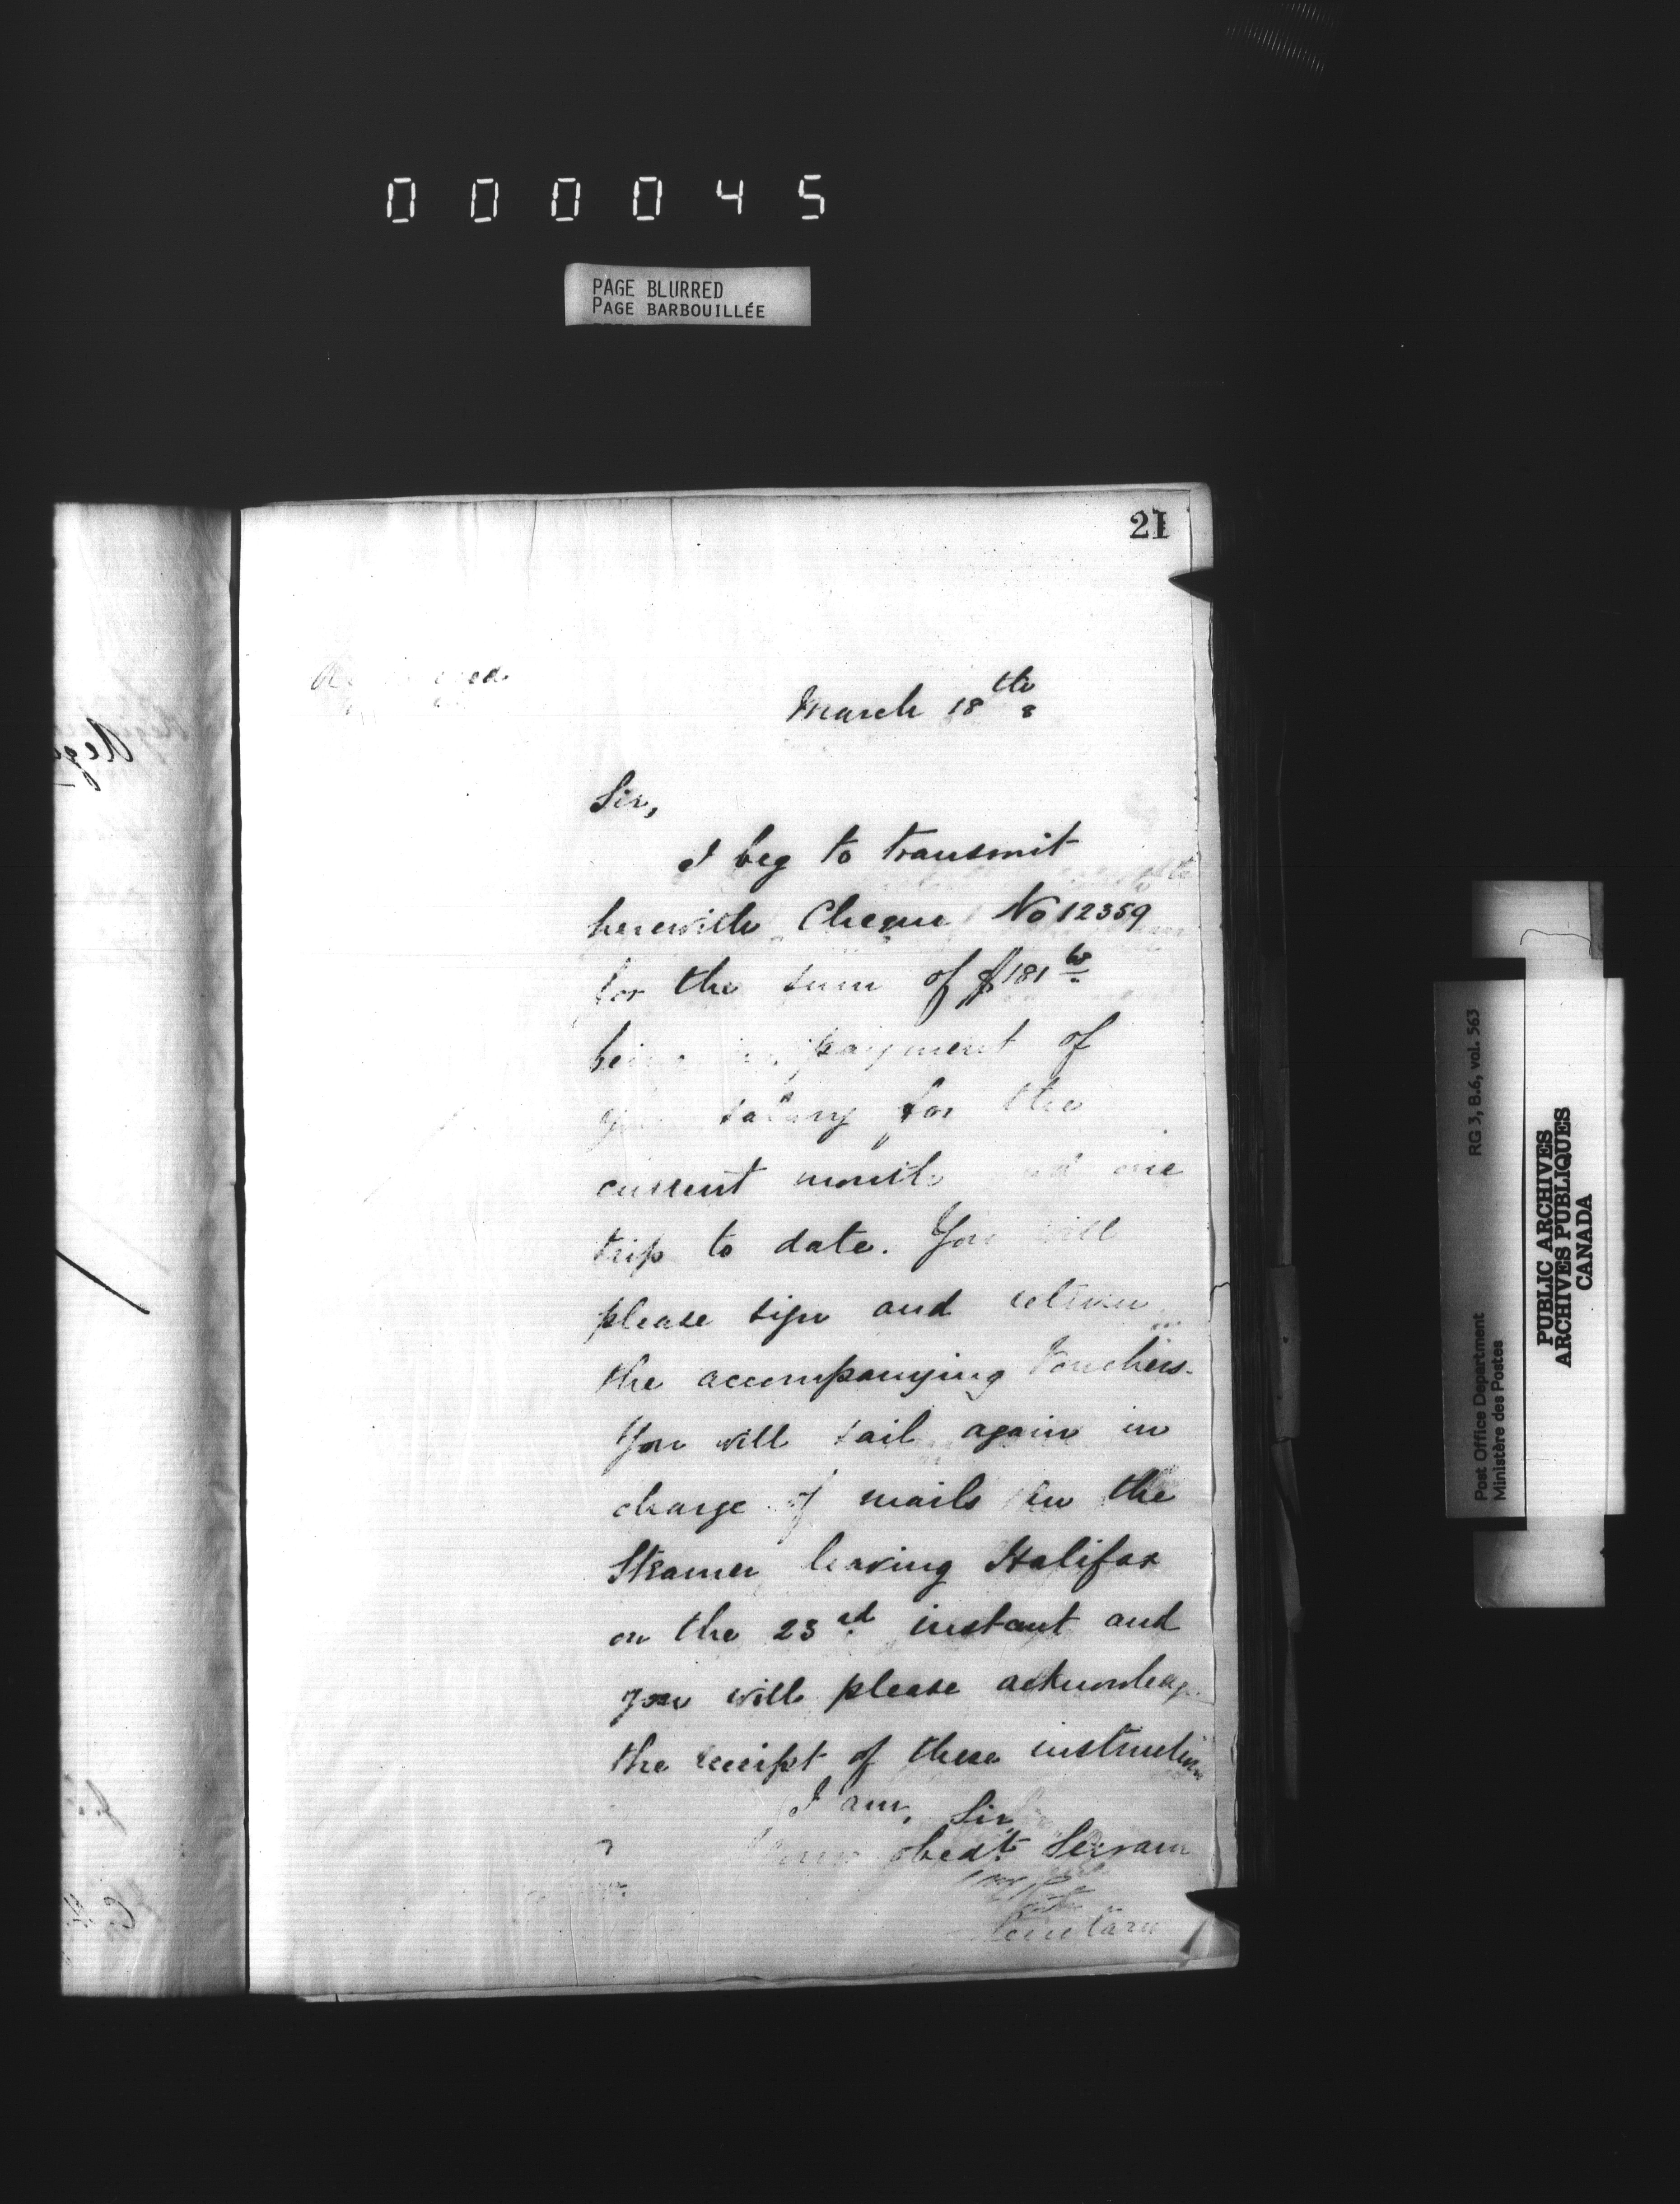 000045
PAGE BLURRED
PAGE BARBOUILLÉE
21
March 18th 8
Sir,
I beg to transmit
herewith Cheque No 12359
for the sum of $181
being payment of
your salary for the
current month one
trip to date. You will
please sign and return
the accompanying Vouchers.
You will sail again in
charge of mails in the
Steamer leaving Halifax
on the 23rd instant and
you will please acknowledge
the receipt of these instructions
I am, Sir,
Your obedt Servant
Secretary
RG 3, B.6, vol. 563
Post Office Department
Ministère des Postes
PUBLIC ARCHIVES
ARCHIVES PUBLIQUES
CANADA